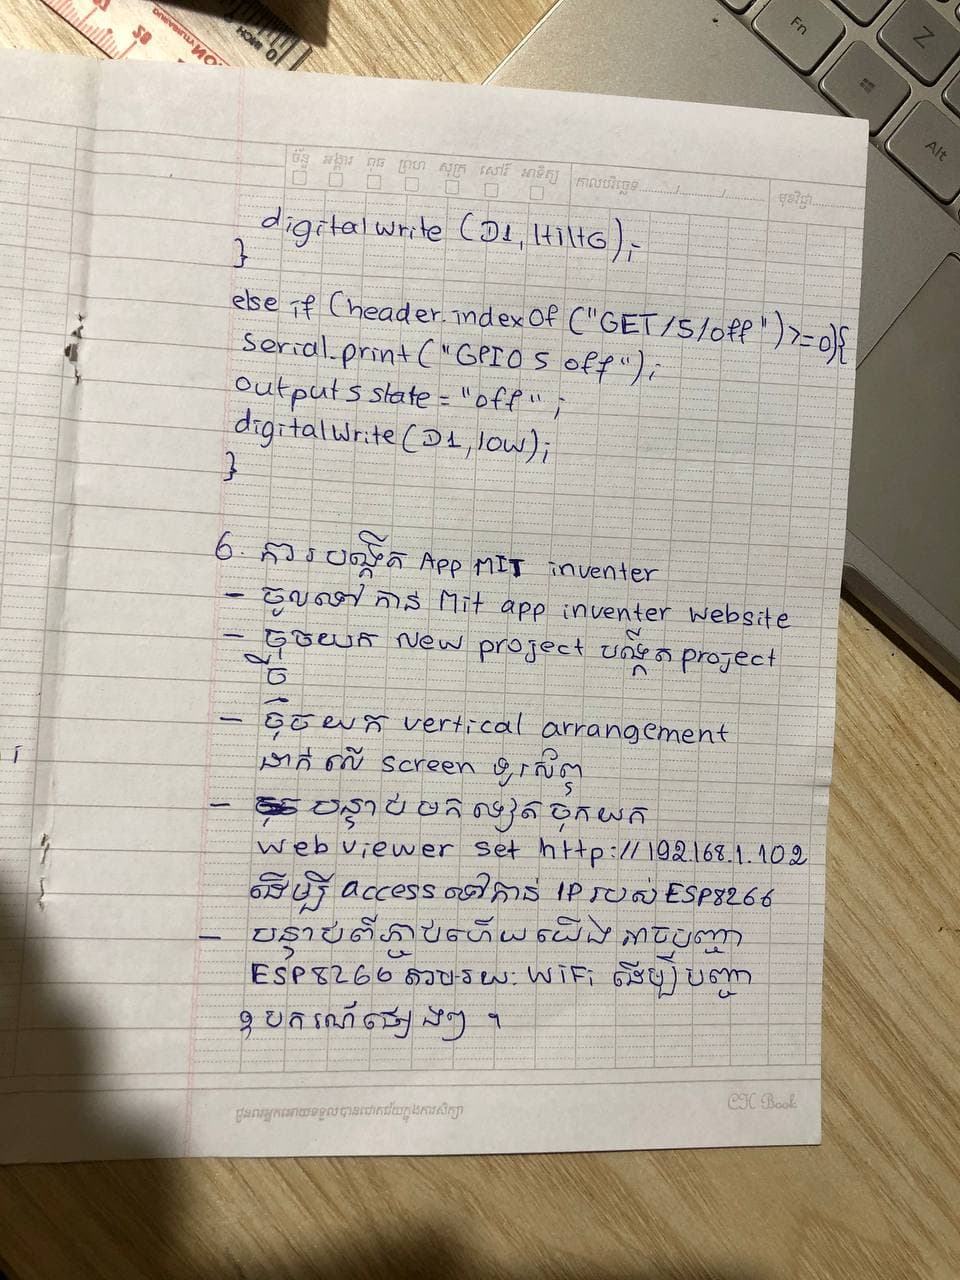 INCH 0
ច័ន្ទ អង្គារ ពុធ ព្រហ សុក្រ សៅរ៍ អាទិត្យ កាលបរិច្ឆេទ......../......../........ មុខវិជ្ជា........
Fn
Z
Alt
digitalwrite (D1, HiHG);
}
else if (header.indexOf ("GET/5/off")>=0){
serial.print ("GPIO 5 off");
output5state = "off";
digitalWrite(D1, low);
}
6. ការបង្កើត App MIT inventer
- ចូលទៅកាន់ Mit app inventer website
- ចុចយក new project បង្កើត project
ថ្មី
- ចុចយក vertical arrangement
ដាក់លើ screen ទូរស័ព្ទ
- បន្ទាប់មកទៀតចុកយក
web viewer set http://192.168.1.102
ដើម្បី access ទៅកាន់ IP របស់ ESP8266
- បន្ទាប់ពីភ្ជាប់ហើយយើងអាចបញ្ជា
ESP8266 តាមរយៈ WiFi ដើម្បីបញ្ជា
ឧបករណ៍ផ្សេងៗ ។
ជូនពរអ្នកអោយទទួលបានជោគជ័យក្នុងការសិក្សា
CH Book